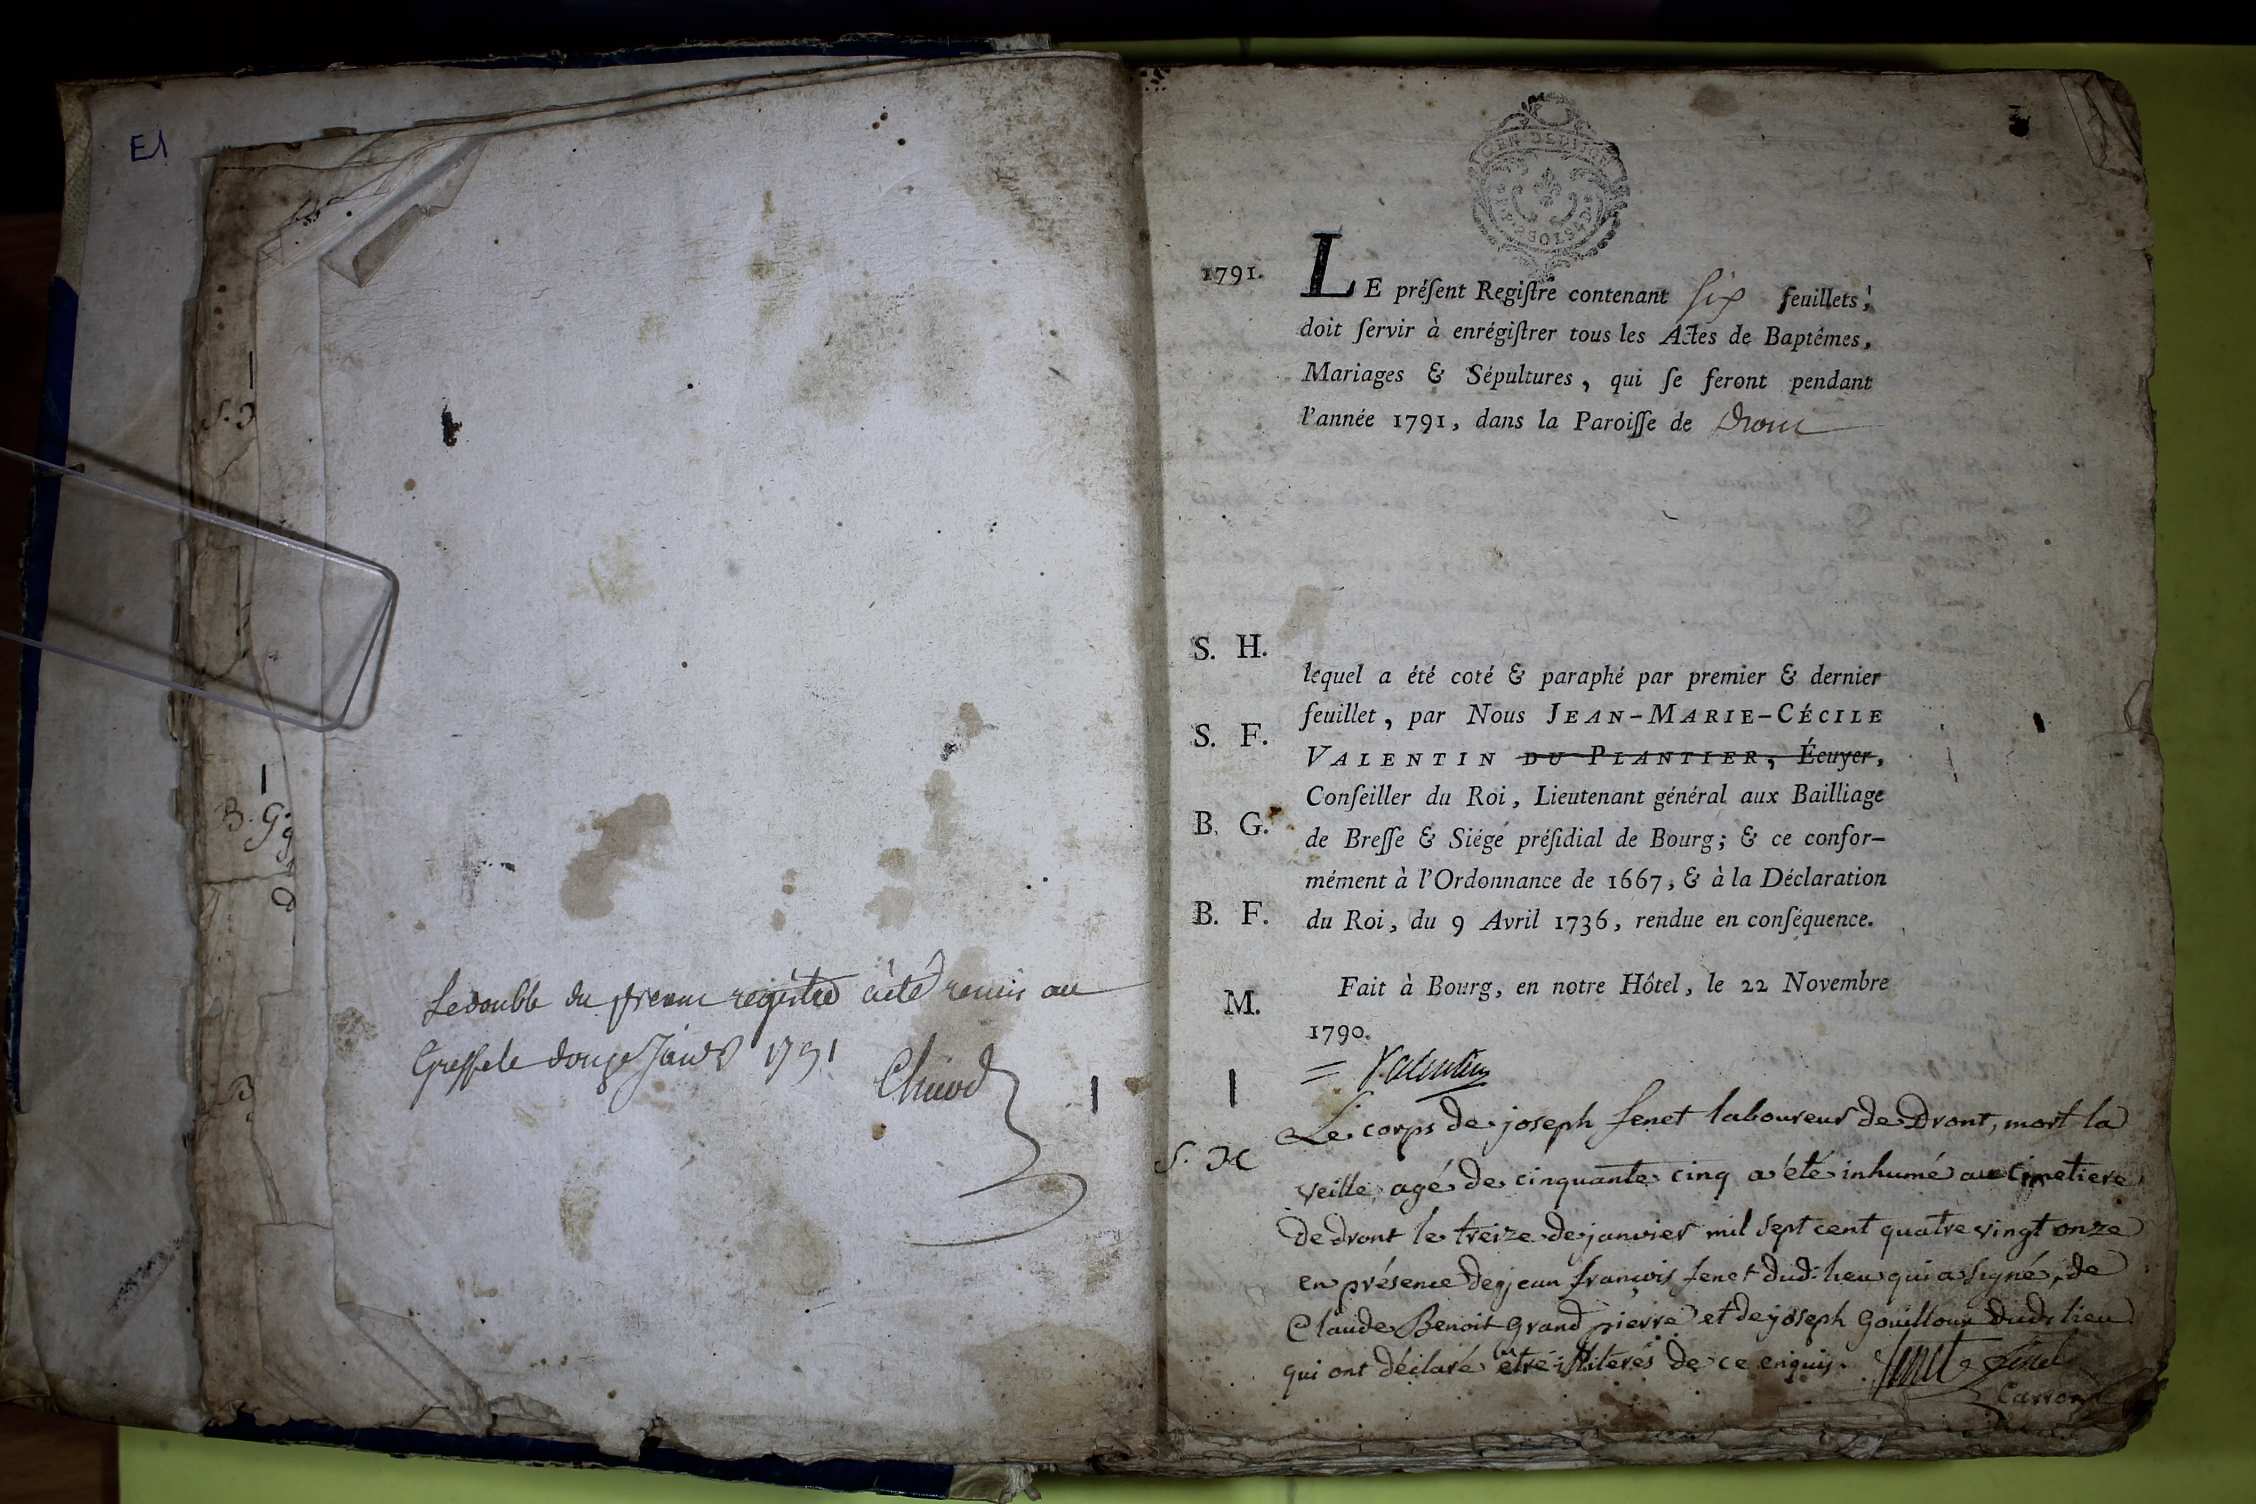 E1
S. H
B. G.
B.
Le double du présent registre a été remis au
Greffe le douze Janvr 1791
1
1791.
LE préſent Regiſtre contenant six feuillets,
doit ſervir à enrégiſtrer tous les Actes de Baptêmes,
Mariages & Sépultures, qui ſe feront pendant
l'année 1791, dans la Paroiſſe de Dront
S. H.
lequel a été coté & paraphé par premier & dernier
feuillet, par Nous JEAN-MARIE-CÉCILE
S. F.
VALENTIN DU PLANTIER, Écuyer,
Conſeiller du Roi, Lieutenant général aux Bailliage
B. G.
de Breſſe & Siége préſidial de Bourg; & ce confor-
mément à l'Ordonnance de 1667, & à la Déclaration
B. F.
du Roi, du 9 Avril 1736, rendue en conſéquence.
M.
Fait à Bourg, en notre Hôtel, le 22 Novembre
1790.
= Valentin
1
S. H
Le corps de joseph fenet laboureur de Dront, mort la
veille, agé de cinquante cinq a été inhumé au cimetiere
de dront le treize de janvier mil sept cent quatre vingt onze
en présence de jean françois fenet dud. lieu qui a signé, de
Claude Benoit grand pierre et de joseph Gouilloux dud. lieu
qui ont déclaré être illiterés de ce enquis. fenet
Carron